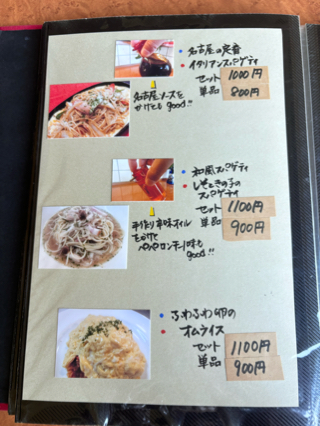 名古屋の定番
イタリアンスパゲティ
セット 1000円
単品 800円
名古屋ソースを
かけても good!!
和風スパゲティ
しそときのこの
スパゲティ
セット 1100円
単品 900円
手作り辛味オイル
をかけて
ペペロンチーノ味も
good!!
ふわふわ卵の
オムライス
セット 1100円
単品 900円